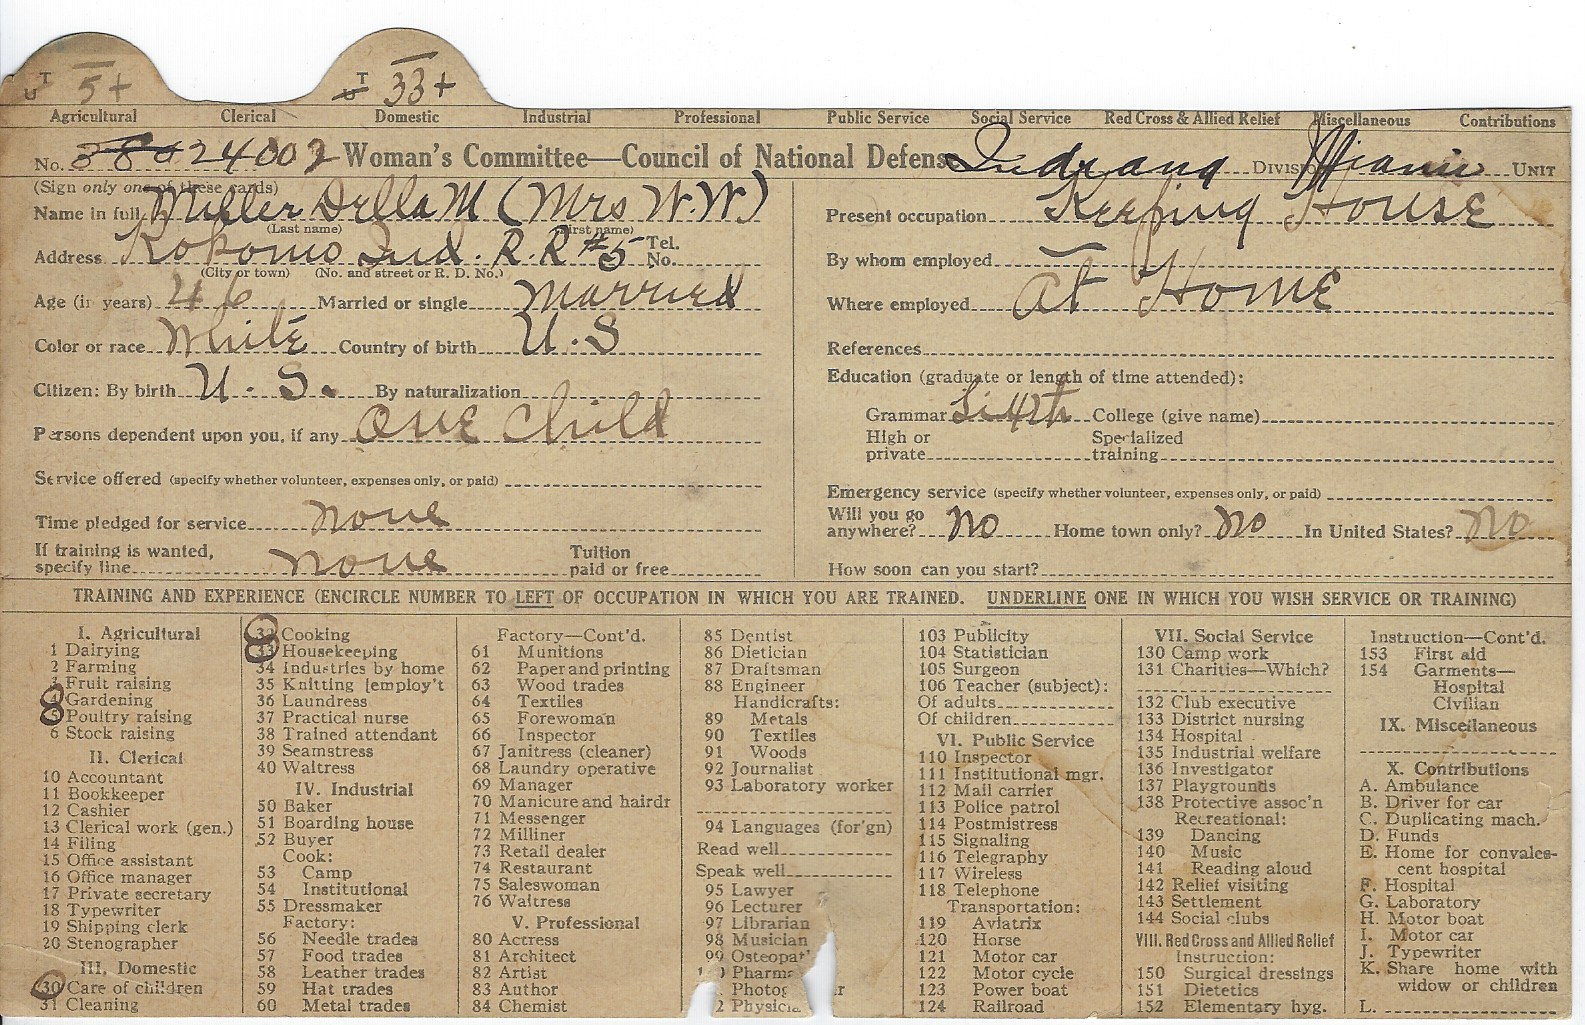 T U 5+ T U 33+
Agricultural Clerical Domestic Industrial Professional Public Service Social Service Red Cross & Allied Relief Miscellaneous Contributions
No. 24002 Woman's Committee—Council of National Defense Indiana Division Miami Unit
(Sign only one of these cards)
Name in full Miller Della M (Mrs W.W.)
(Last name) (First name)
Address Kokomo Ind. R.R #5 Tel. No.
(City or town) (No. and street or R. D. No.)
Age (in years) 46 Married or single Married
Color or race White Country of birth U.S
Citizen: By birth U.S. By naturalization
Persons dependent upon you, if any One Child
Service offered (specify whether volunteer, expenses only, or paid)
Time pledged for service none
If training is wanted, specify line none Tuition paid or free
Present occupation Keeping House
By whom employed —
Where employed At Home
References
Education (graduate or length of time attended):
Grammar Sixth College (give name)
High or private Specialized training
Emergency service (specify whether volunteer, expenses only, or paid)
Will you go anywhere? No Home town only? No In United States? No
How soon can you start?
TRAINING AND EXPERIENCE (ENCIRCLE NUMBER TO LEFT OF OCCUPATION IN WHICH YOU ARE TRAINED. UNDERLINE ONE IN WHICH YOU WISH SERVICE OR TRAINING)
I. Agricultural
1 Dairying
2 Farming
3 Fruit raising
4 Gardening
5 Poultry raising
6 Stock raising
II. Clerical
10 Accountant
11 Bookkeeper
12 Cashier
13 Clerical work (gen.)
14 Filing
15 Office assistant
16 Office manager
17 Private secretary
18 Typewriter
19 Shipping clerk
20 Stenographer
III. Domestic
30 Care of children
31 Cleaning
32 Cooking
33 Housekeeping
34 Industries by home
35 Knitting [employ't
36 Laundress
37 Practical nurse
38 Trained attendant
39 Seamstress
40 Waitress
IV. Industrial
50 Baker
51 Boarding house
52 Buyer
Cook:
53 Camp
54 Institutional
55 Dressmaker
Factory:
56 Needle trades
57 Food trades
58 Leather trades
59 Hat trades
60 Metal trades
Factory—Cont'd.
61 Munitions
62 Paper and printing
63 Wood trades
64 Textiles
65 Forewoman
66 Inspector
67 Janitress (cleaner)
68 Laundry operative
69 Manager
70 Manicure and hairdr
71 Messenger
72 Milliner
73 Retail dealer
74 Restaurant
75 Saleswoman
76 Waitress
V. Professional
80 Actress
81 Architect
82 Artist
83 Author
84 Chemist
85 Dentist
86 Dietician
87 Draftsman
88 Engineer
Handicrafts:
89 Metals
90 Textiles
91 Woods
92 Journalist
93 Laboratory worker
94 Languages (for'gn)
Read well
Speak well
95 Lawyer
96 Lecturer
97 Librarian
98 Musician
99 Osteopat
Pharma
Photog r
2 Physicia
103 Publicity
104 Statistician
105 Surgeon
106 Teacher (subject):
Of adults
Of children
VI. Public Service
110 Inspector
111 Institutional mgr.
112 Mail carrier
113 Police patrol
114 Postmistress
115 Signaling
116 Telegraphy
117 Wireless
118 Telephone
Transportation:
119 Aviatrix
120 Horse
121 Motor car
122 Motor cycle
123 Power boat
124 Railroad
VII. Social Service
130 Camp work
131 Charities—Which?
132 Club executive
133 District nursing
134 Hospital
135 Industrial welfare
136 Investigator
137 Playgrounds
138 Protective assoc'n
Recreational:
139 Dancing
140 Music
141 Reading aloud
142 Relief visiting
143 Settlement
144 Social clubs
VIII. Red Cross and Allied Relief
Instruction:
150 Surgical dressings
151 Dietetics
152 Elementary hyg.
Instruction—Cont'd.
153 First aid
154 Garments—
Hospital
Civilian
IX. Miscellaneous
X. Contributions
A. Ambulance
B. Driver for car
C. Duplicating mach.
D. Funds
E. Home for convales-
cent hospital
F. Hospital
G. Laboratory
H. Motor boat
I. Motor car
J. Typewriter
K. Share home with
widow or children
L.